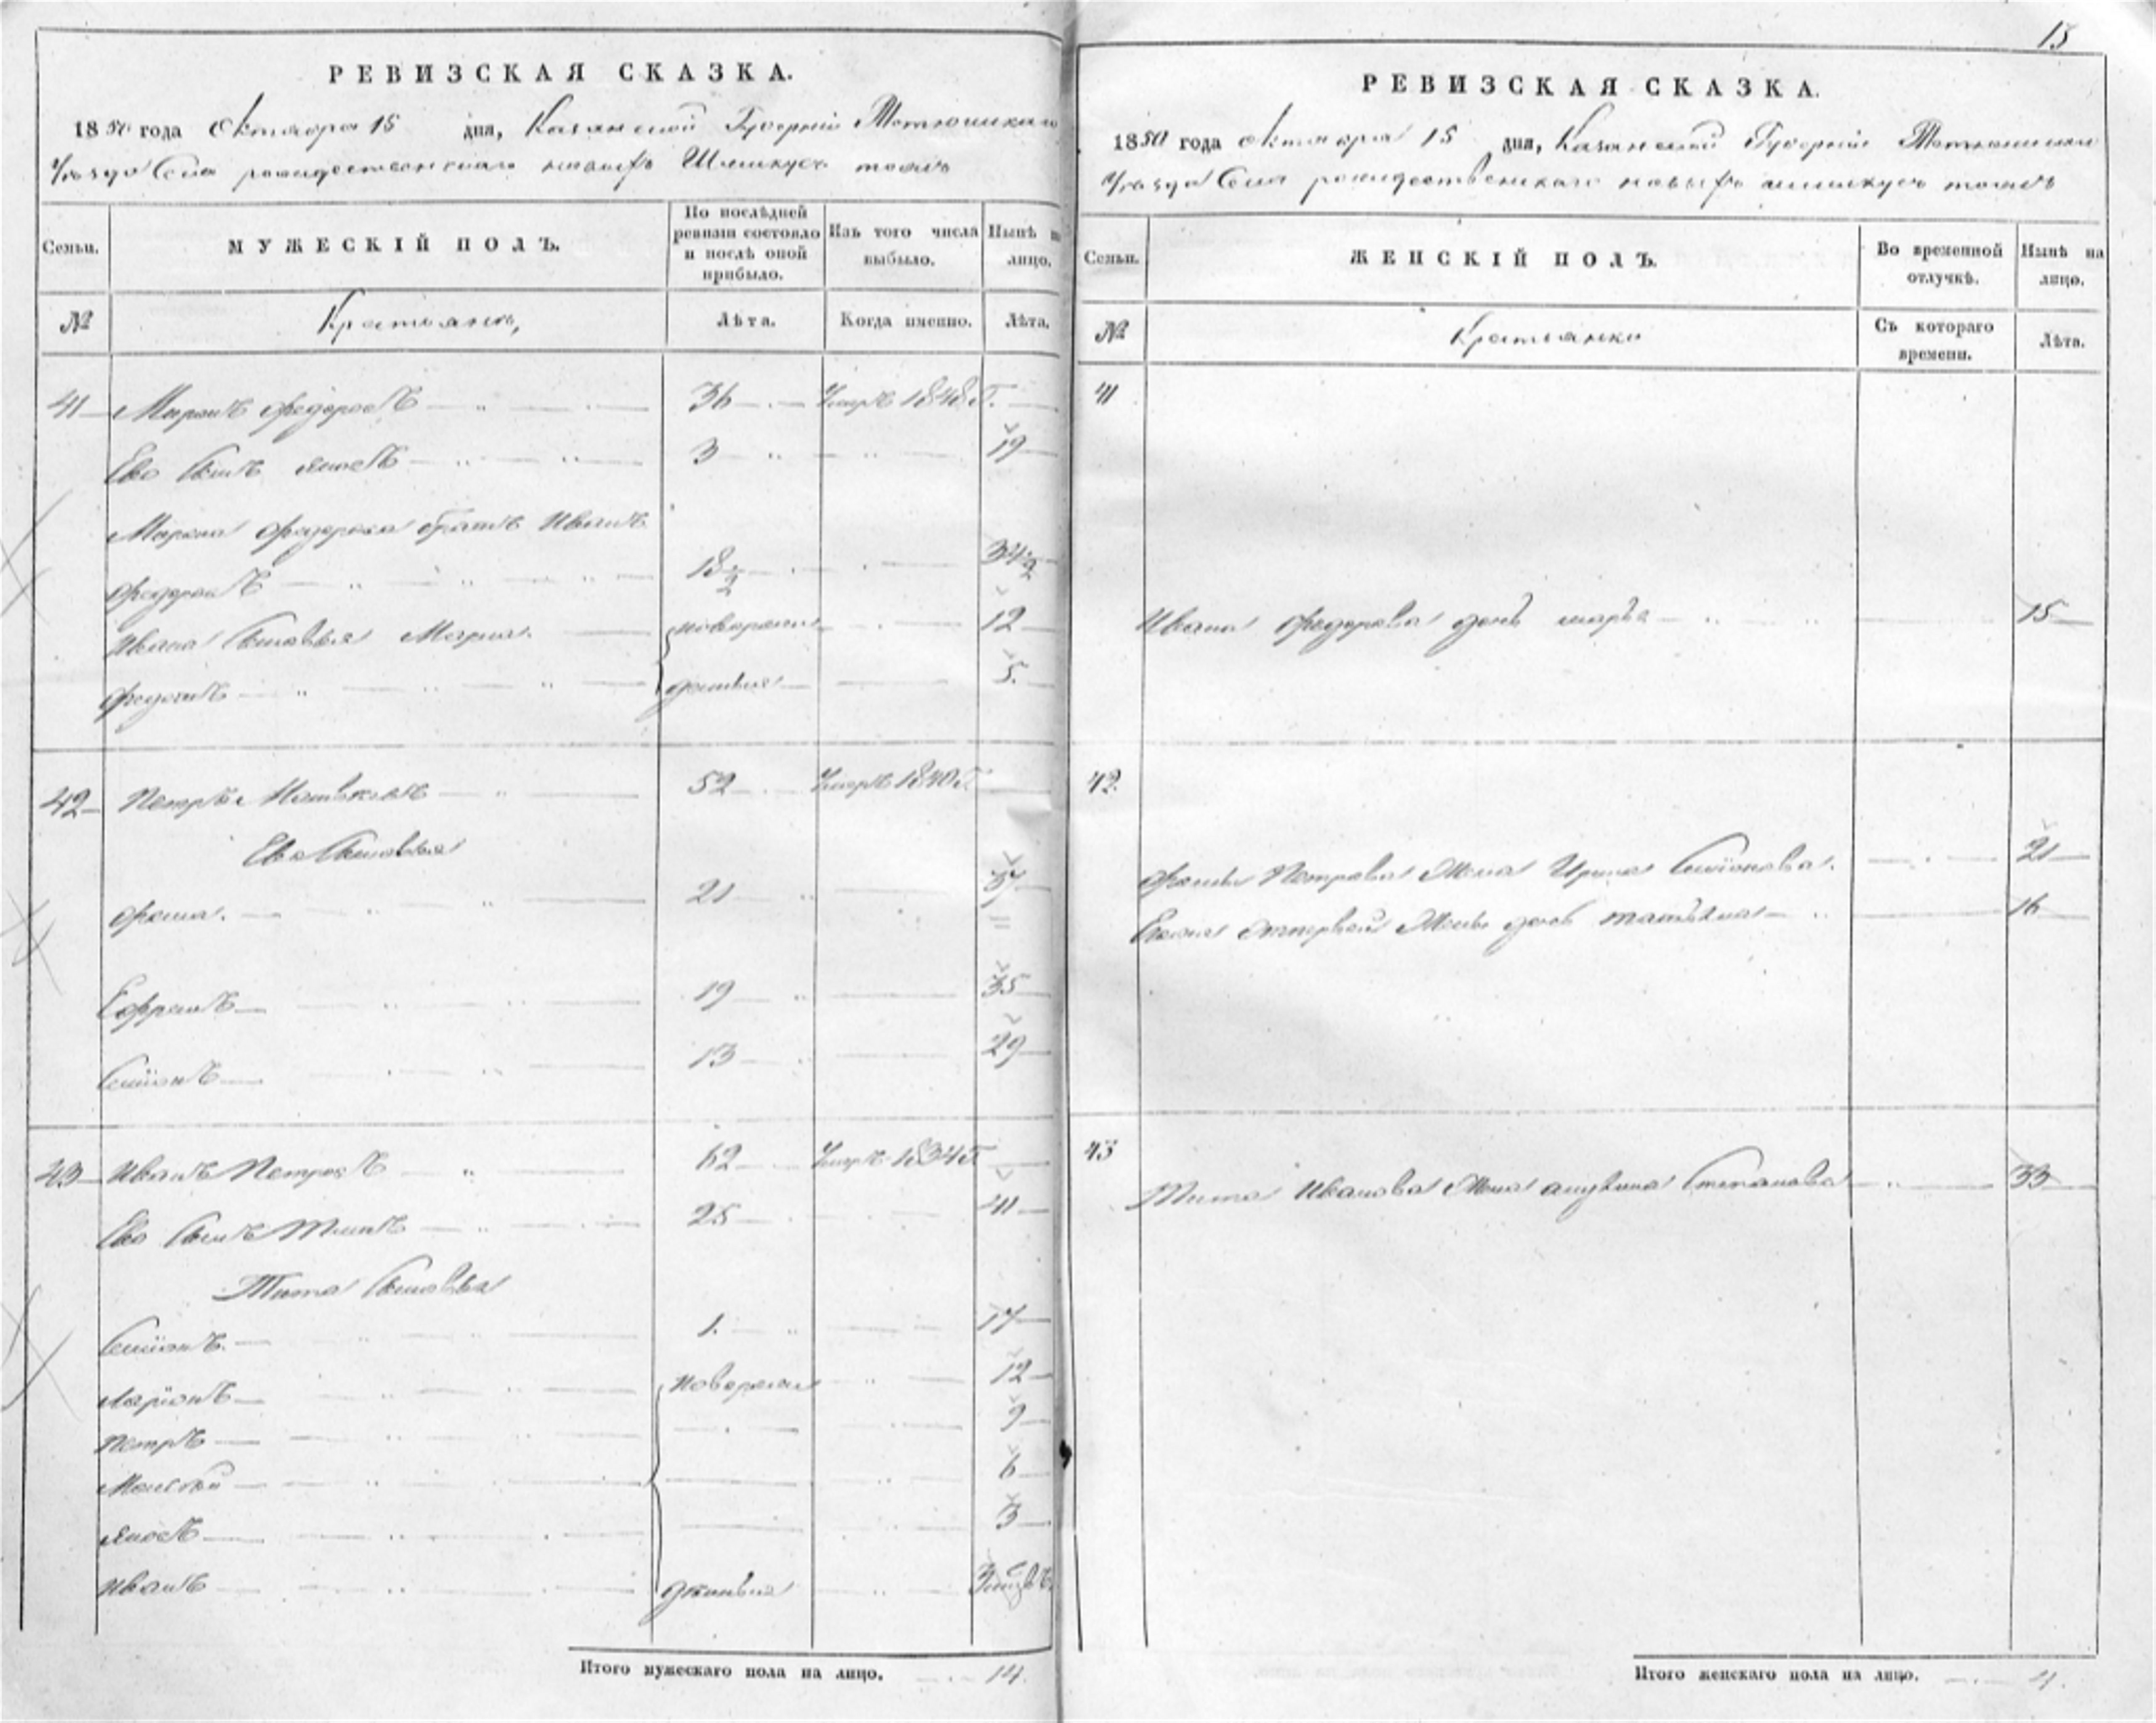 РЕВИЗСКАЯ СКАЗКА.
1850 года Октября 15 дня, Казанской Губернiи Тетюшскаго
Уѣзда Села рождественскаго тожъ
Семьи.
МУЖЕСКIЙ ПОЛЪ.
По послѣдней ревизiи состояло и послѣ оной прибыло.
Изъ того числа выбыло.
Нынѣ на лицо.
№
Крестьяне,
Лѣта.
Когда именно.
Лѣта.
41 Миронъ Федоровъ 36 Умеръ 1848 Г.
Его Сынъ Яковъ 3 19
Мирона Федорова братъ Иванъ
Федоровъ 18 1/2 34 1/2
Ивана Сыновья новорож 12
Федотъ денныя 5.
42 Петръ 52 Умеръ 1840 Г.
Его Сыновья
Фома. 21 37
Ефремъ 19 35
Семiонъ 13 29
43 Иванъ Петровъ 62 Умеръ 1834 Г.
Его Сынъ Титъ 25 41
Тита Сыновья
Семiонъ. 1. 17
Ларiонъ новорож 12
Петръ 9
Моисей 6
Яковъ 3
Иванъ денныя
Итого мужескаго пола на лицо. 14.
15
РЕВИЗСКАЯ СКАЗКА.
1850 года Октября 15 дня, Казанской Губернiи
Уѣзда Села рождественскаго тожъ
Семьи.
ЖЕНСКIЙ ПОЛЪ.
Во временной отлучкѣ.
Нынѣ на лицо.
№
Крестьянки
Съ котораго времени.
Лѣта.
41
Ивана Федорова дочь марья 15
42.
Фомы Петрова Жена Ирина Семiонова. 21
Его отпервой Жены дочь татьяна 16
43
Тита Иванова Жена акулина Степанова 33
Итого женскаго пола на лицо. 4.